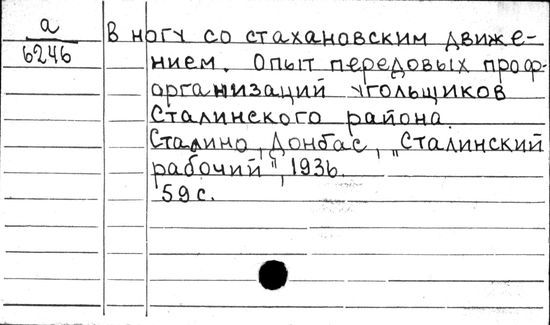 а
6246
В ногу со стахановским движе-
нием. Опыт передовых проф-
организаций угольщиков
Сталинского района.
Сталино, Донбас, "Сталинский
рабочий", 1936.
59 с.